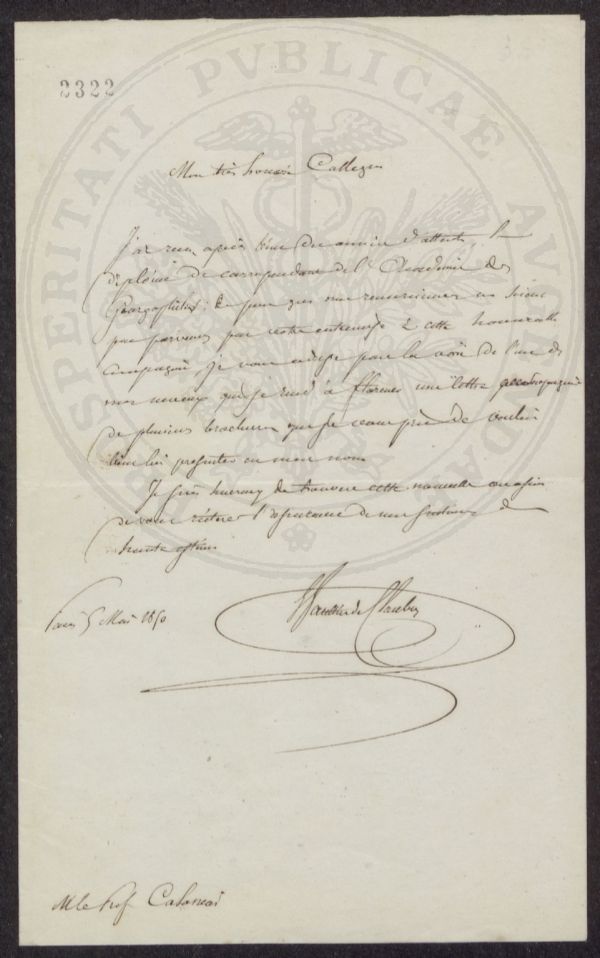 2322
PROSPERITATI PVBLICAE AVGENDAE
Mon très honoré Collegue
J'ai reçu, après bien des années d'attente, le
diplome de correspondant de l'Academie des
Georgophiles; Ce que mes remerciemens
par votre entremise à cette honorable
compagnie, je vous adresse par la voie de l'un de
mes neveux qui se rend à florence une lettre accompagnée
de plusieurs brochures que je vous prie de vouloir
bien lui presenter en mon nom
Je suis heureux de trouver cette nouvelle occasion
de vous réiterer l'assurance de mes sentimens de
haute estime
Paris 5 Mai 1850
Gaultier de Claubry
M le Prof